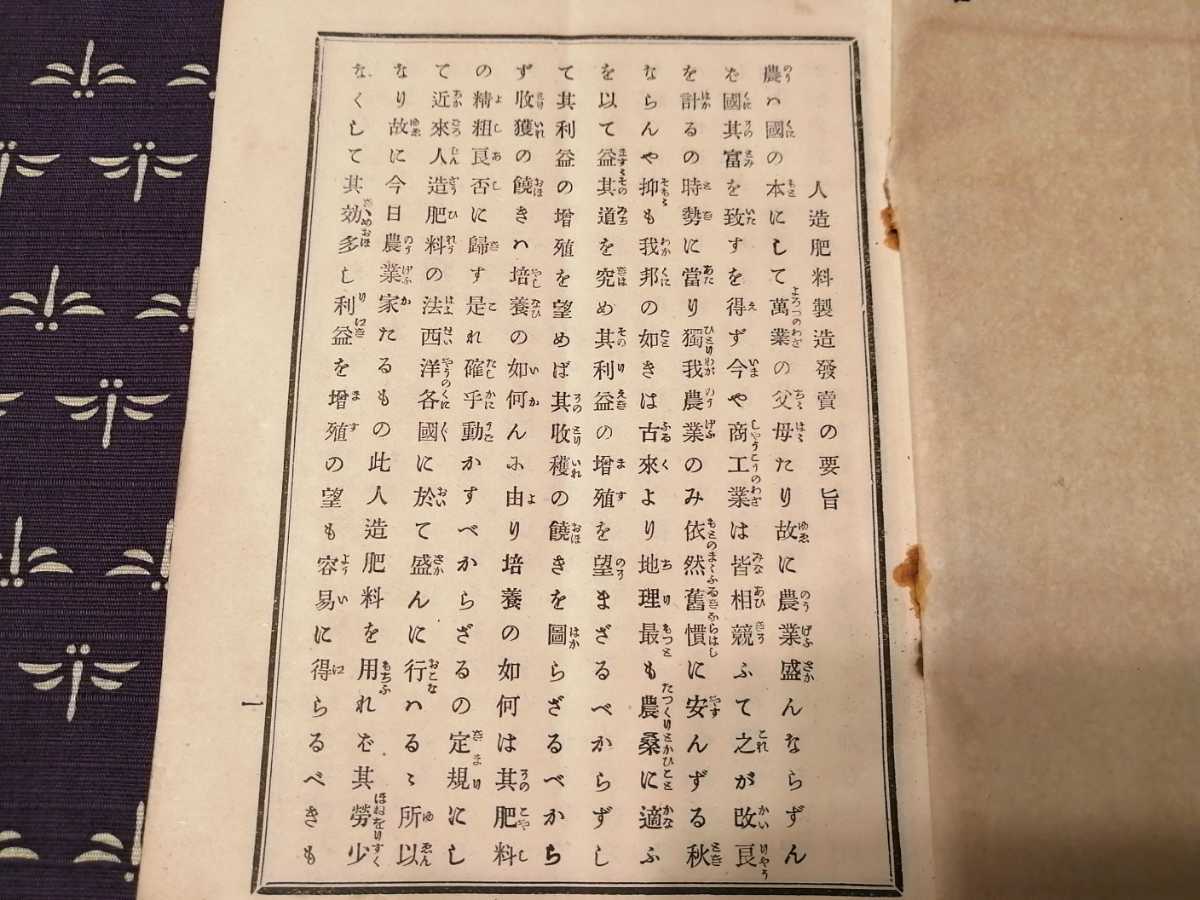 人造肥料製造發賣の要旨
農ハ國の本にして萬業の父母たり故に農業盛んならずん
ば國其富を致すを得ず今や商工業は皆相競ふて之が改良
を計るの時勢に當り獨我農業のみ依然舊慣に安んずる秋
ならんや抑も我邦の如きは古來より地理最も農桑に適ふ
を以て益其道を究め其利益の增殖を望まざるべからずし
て其利益の增殖を望めば其收穫の饒きを圖らざるべから
ず收獲の饒きハ培養の如何んに由り培養の如何は其肥料
の精粗良否に歸す是れ確乎動かすべからざるの定規にし
て近來人造肥料の法西洋各國に於て盛んに行ハるゝ所以
なり故に今日農業家たるもの此人造肥料を用れば其勞少
なくして其効多し利益を增殖の望も容易に得らるべきも
一